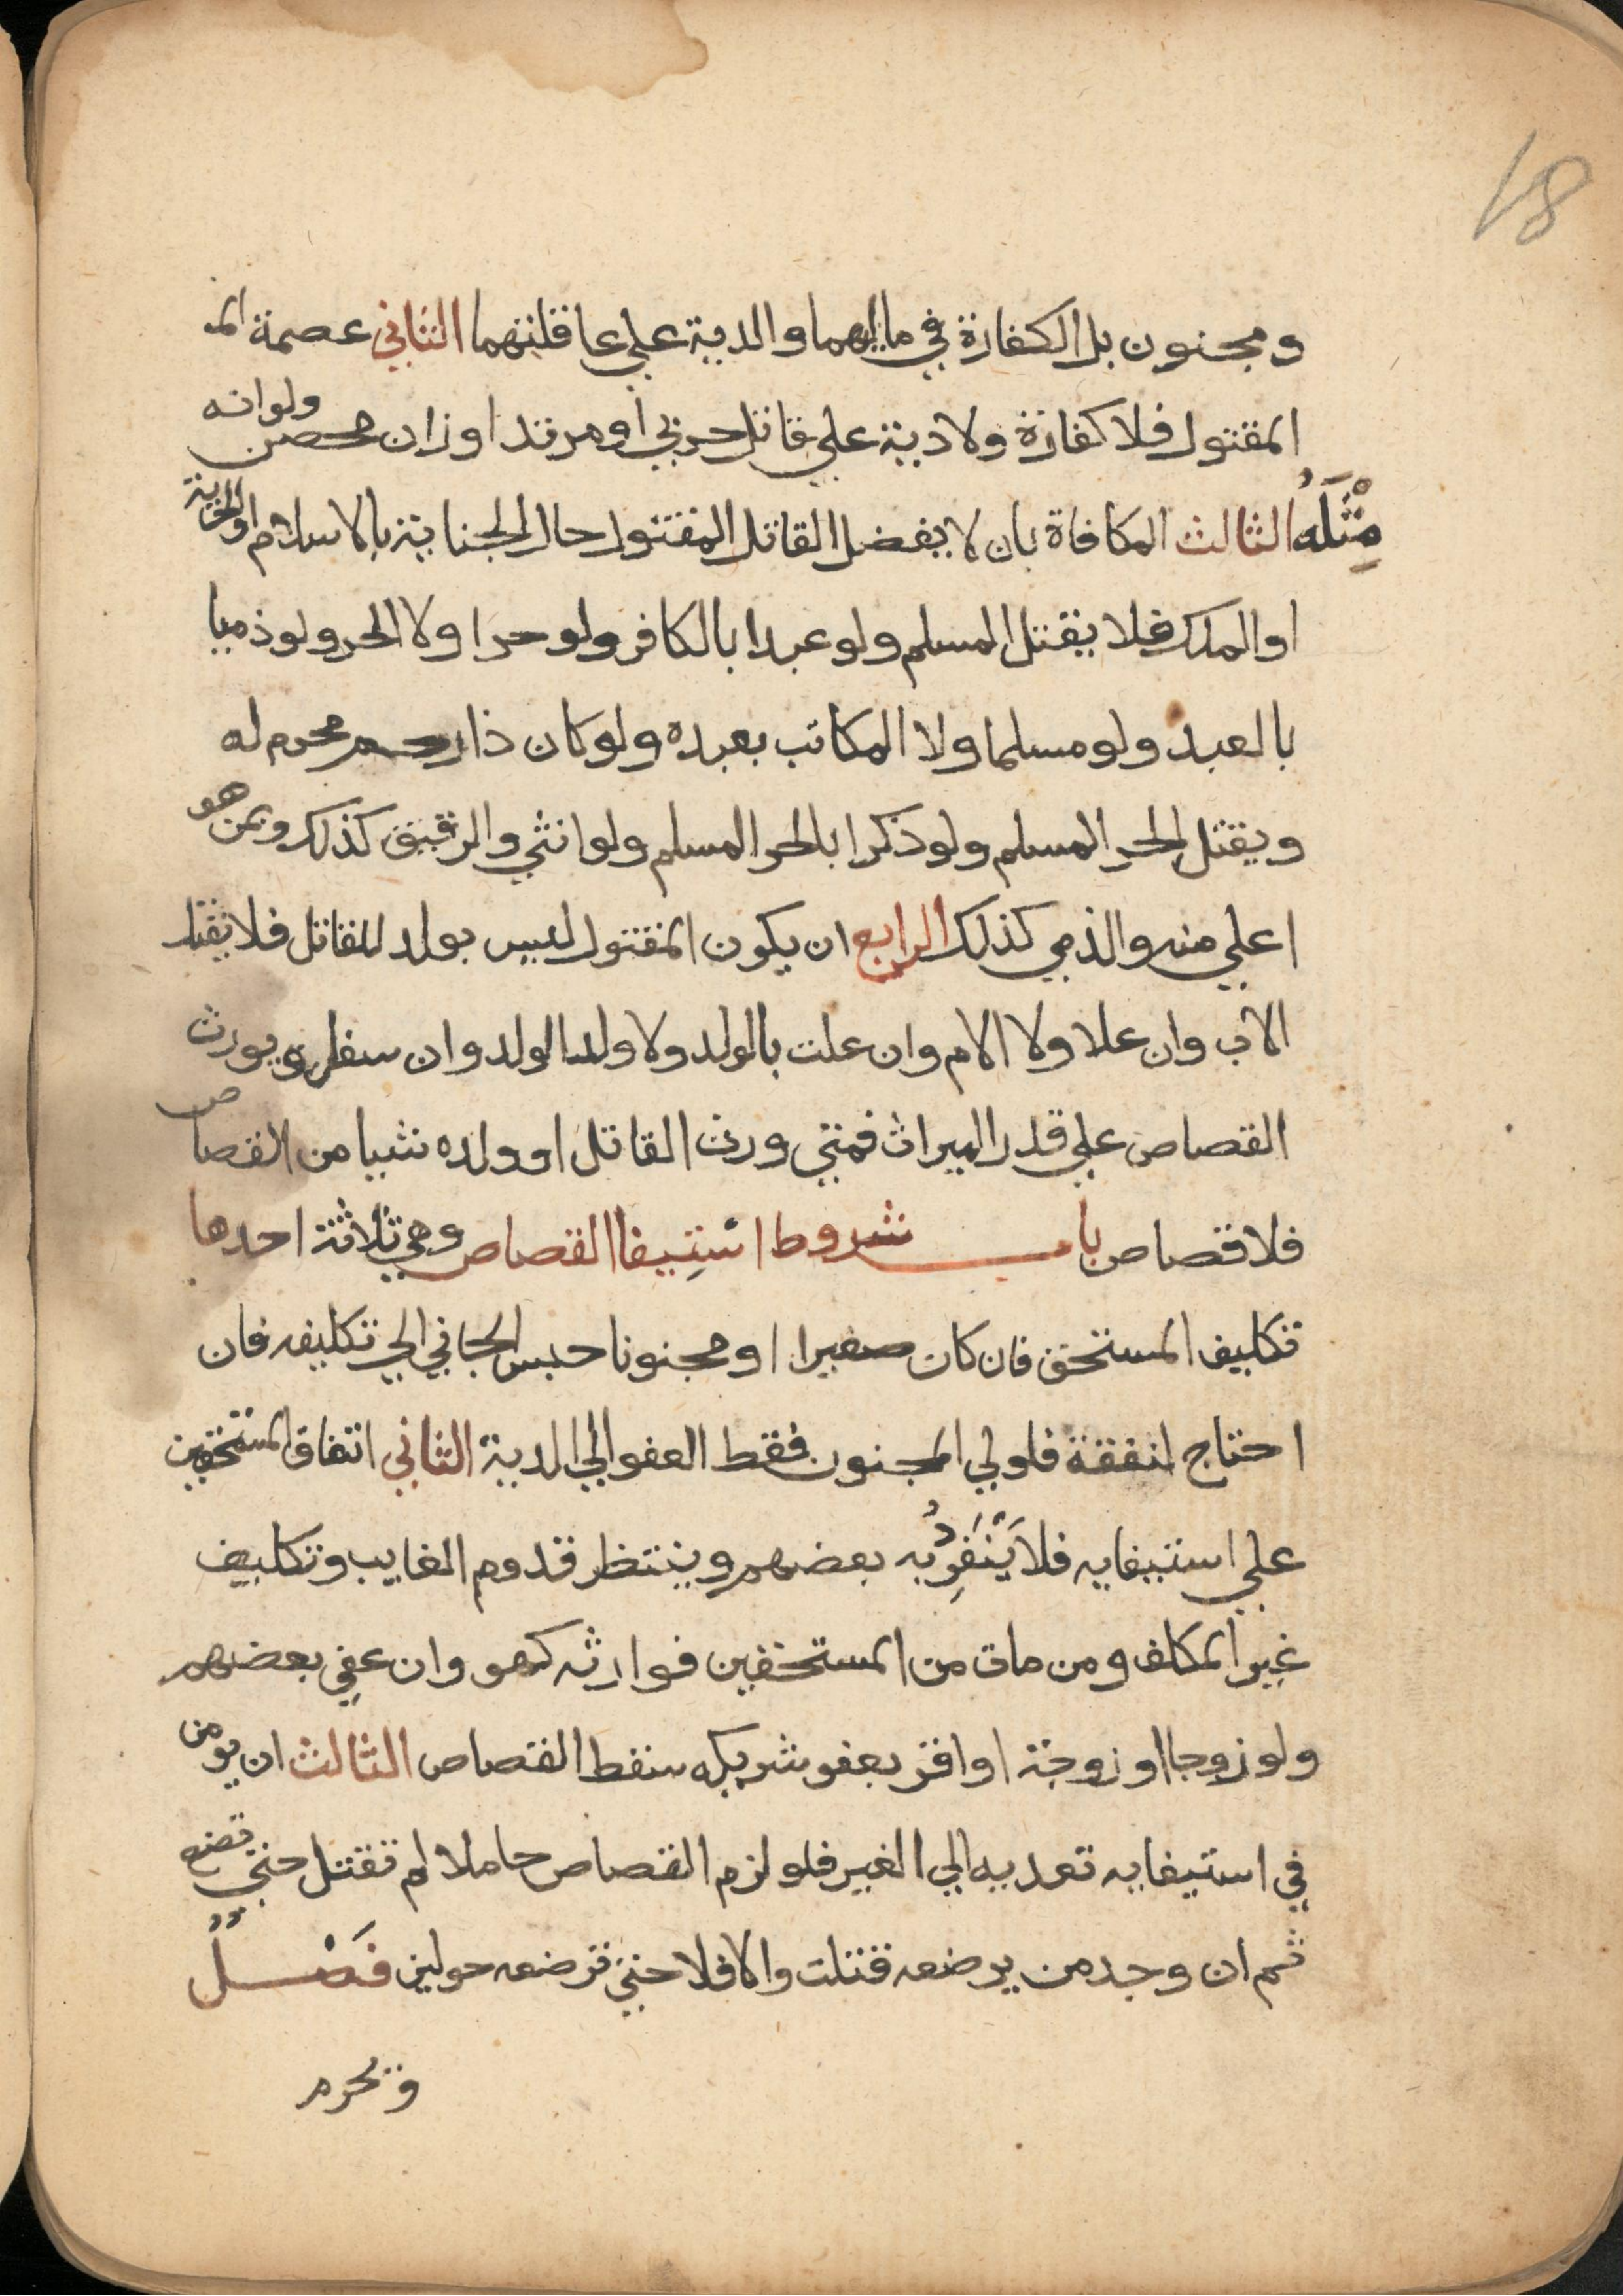 18
ومجنون بل الكفارة في مالهما والدية علي عاقلتهما الثاني عصمة الم
المقتول فلا كفارة ولا دية علي قاتل حربي او مرتد او زان محصن ولو انه
مِثْلَهُ الثالث المكافاة بان لا يفضل القاتل المقتول حال الجناية بالاسلام او الحرية
او الملك فلا يقتل المسلم ولو عبدا بالكافر ولو حرا ولا الحر ولو ذميا
بالعبد ولو مسلما ولا المكاتب بعبده ولو كان ذا رحم محرم له
ويقتل الحر المسلم ولو ذكرا بالحر المسلم ولو انثي والرقيق كذلك وبمن هو
اعلي منه والذمي كذلك الرابع ان يكون المقتول ليس بولد للقاتل فلا يقتل
الاب وان علا ولا الام وان علت بالولد ولا ولد الولد وان سفل ويورث
القصاص علي قدر الميراث فمتي ورث القاتل او ولده شيا من القصاص
فلا قصاص باب شروط اسْتِيفا القصاص وهي ثلاثة احدها
تكليف المستحق فان كان صغيرا او مجنونا حبس الجاني الي تكليفه فان
احتاج لنفقة فلولي المجنون فقط العفو الي الدية الثاني اتفاق المستحقين
علي استيفايه فلا يَنْفَرِدُ به بعضهم وينتظر قدوم الغايب وتكليف
غير المكلف ومن مات من المستحقين فوارثه كهو وان عفي بعضهم
ولو زوجا او زوجة او اقر بعفو شريكه سقط القصاص الثالث ان يومن
في استيفايه تعديه الي الغير فلو لزم القصاص حاملا لم تقتل حتي تضع
ثم ان وجد من يرضعه قتلت والا فلا حتي ترضعه حولين فَصْلٌ
وتحرم